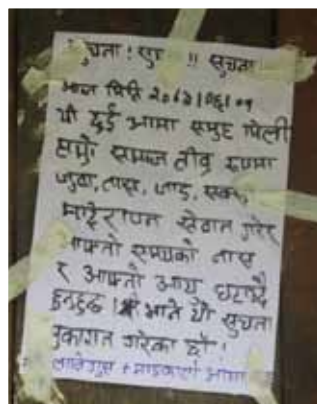 सुचना ! !! सुचना
आज मिति २०६२।०६।०१
यो दुई आमा समुह मिली
हाम्रो समाज तीव्र रुपमा
जुवा, तास, जाड, रक्सी
सेवान गरेर
आफ्नो समयको नास
र आफ्नो आय घटाउँदै
हुनुहुन्छ । भनि यो सुचना
प्रकाशित गरेका छौं !